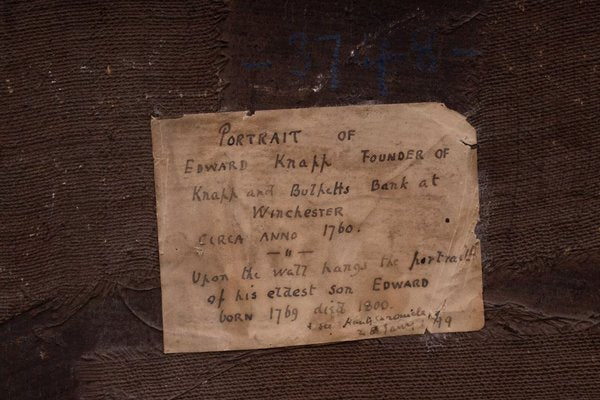 PORTRAIT OF
EDWARD Knapp FOUNDER OF
Knapp and Bulpetts Bank at
Winchester
CIRCA ANNO 1760.
— " —
Upon the wall hangs the portrait
of his eldest son EDWARD
born 1769 died 1800.
see
99